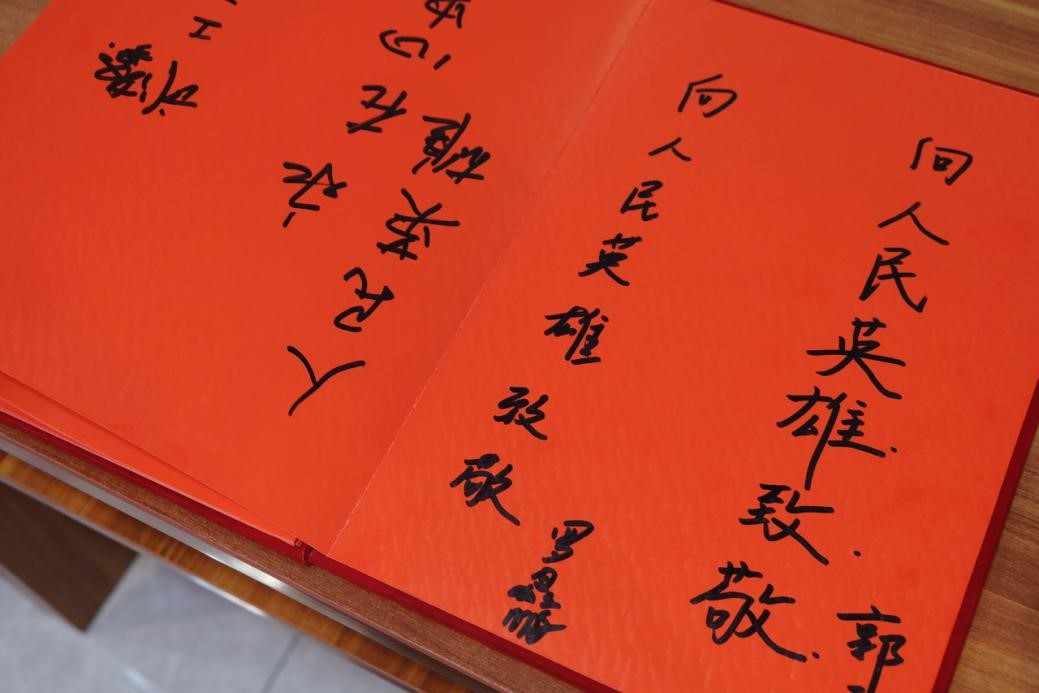 向人民英雄致敬
郭
向人民英雄致敬
罗
人民英雄
永在心中
工